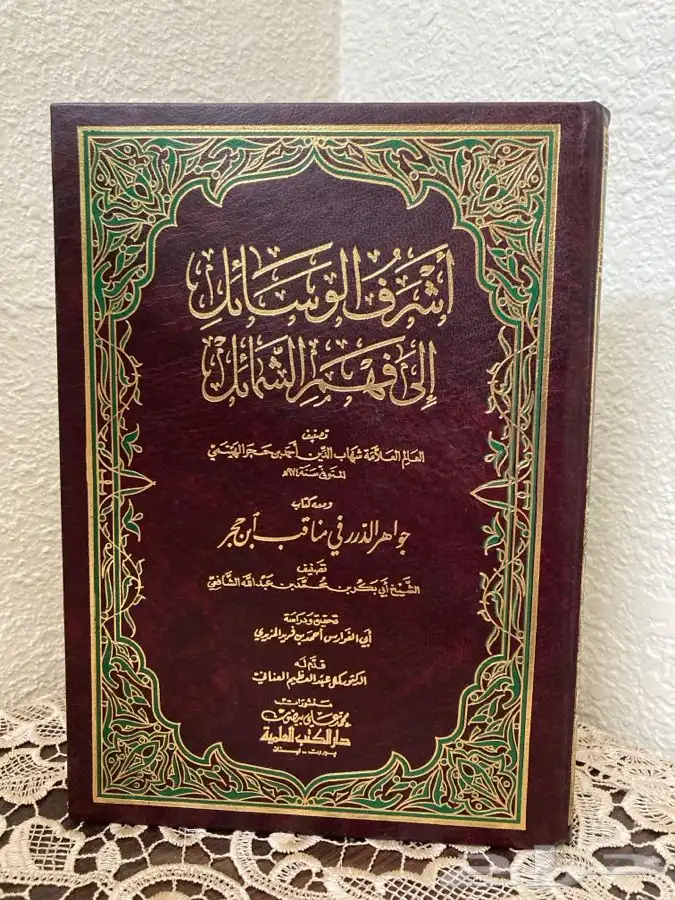 أَشْرَفُ الوَسَائِلِ
إِلَى فَهْمِ الشَّمَائِلِ
تصنيف
العالم العلاّمة شهاب الدين أحمد بن حجر الهيتمي
المتوفى سنة ٩٧٤هـ
ومعه كتاب
جواهر الدرر في مناقب ابن حجر
تصنيف
الشيخ أبي بكر بن محمد بن عبد الله الشافعي
تحقيق ودراسة
أبي الفوارس أحمد بن فريد المزيدي
قدّم له
الدكتور كمال عبد العظيم العناني
منشورات
محمد علي بيضون
دار الكتب العلمية
بيروت - لبنان
حراج